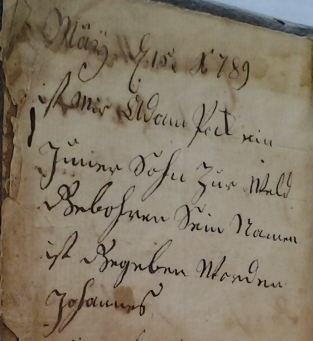 Mäÿ. d. 15. 1789
ist mir Adam Peck ein
Junier Sohn zur Weld
Gebohren Sein Namen
ist Gegeben Worden
Johannes